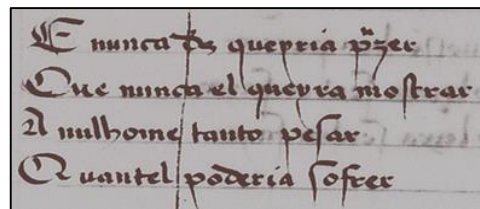 E nunca ds queyria pzer
Que nunca el queyra mostrar
A nulhome tanto pesar
Quantel poderia sofrer